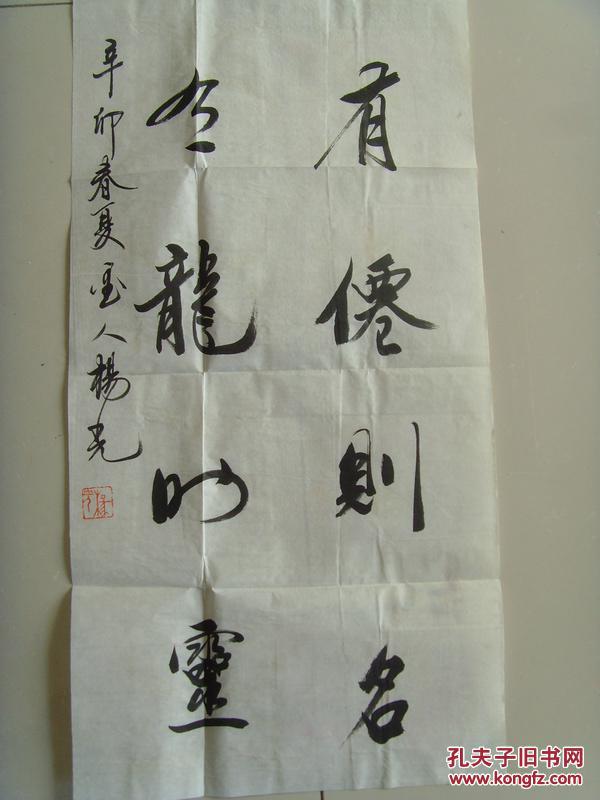 有僊則名
有龍則靈
辛卯春夏 人楊光
孔夫子旧书网
www.kongfz.com